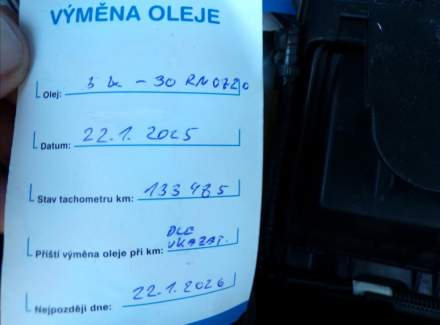 VÝMĚNA OLEJE
Olej: 5W-30 RN0720
Datum: 22.1.2025
Stav tachometru km: 133 485
Příští výměna oleje při km: DLE UKAZAT.
Nejpozději dne: 22.1.2026